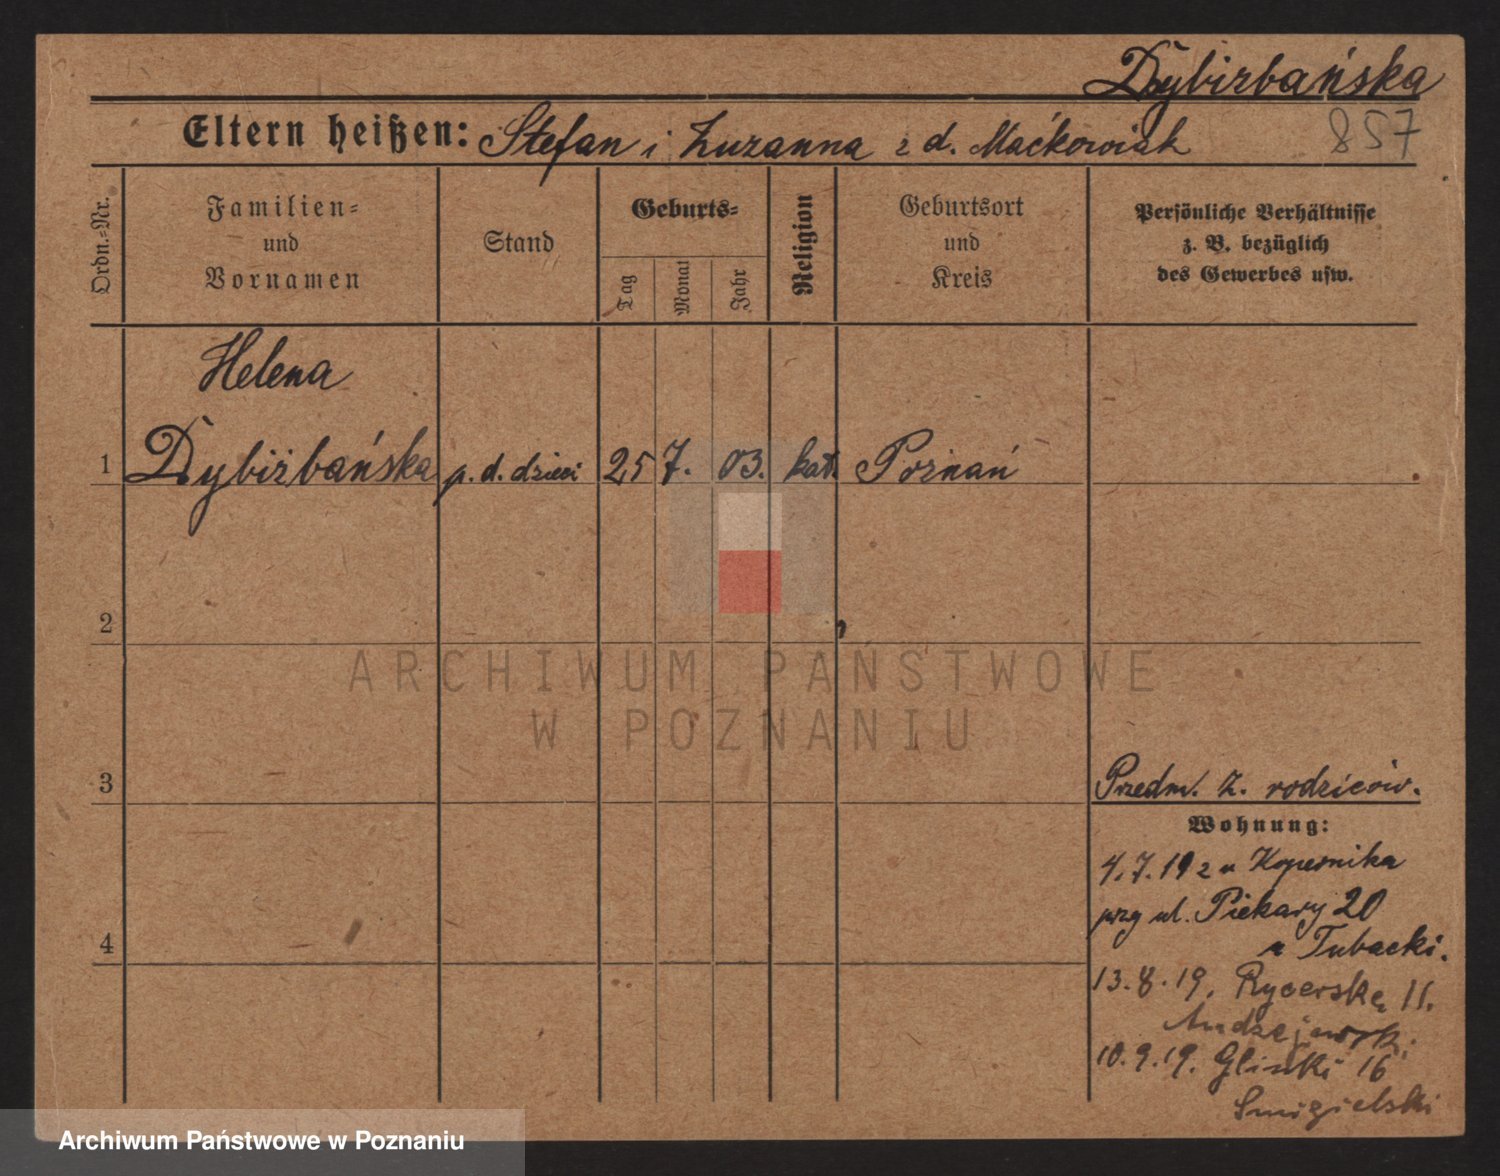 Dybizbańska
Eltern heißen: Stefan i Zuzanna z d. Maćkowiak
857
Ordn.=Nr.
Familien=
und
Vornamen
Stand
Geburts=
Tag
Monat
Jahr
Religion
Geburtsort
und
Kreis
Persönliche Verhältnisse
z. B. bezüglich
des Gewerbes usw.
Helena
1 Dybizbańska p. d. dzieci 25 7. 03. kat. Poznań
2
ARCHIWUM PAŃSTWOWE
W POZNANIU
3
Przedm. z. rodziców.
Wohnung:
4.7.19 z u Kopernika
prz ul. Piekary 20
u Tubacki.
4
13.8.19. Rycerska 11.
10.9.19. Glinki 16
Smigielski
Archiwum Państwowe w Poznaniu